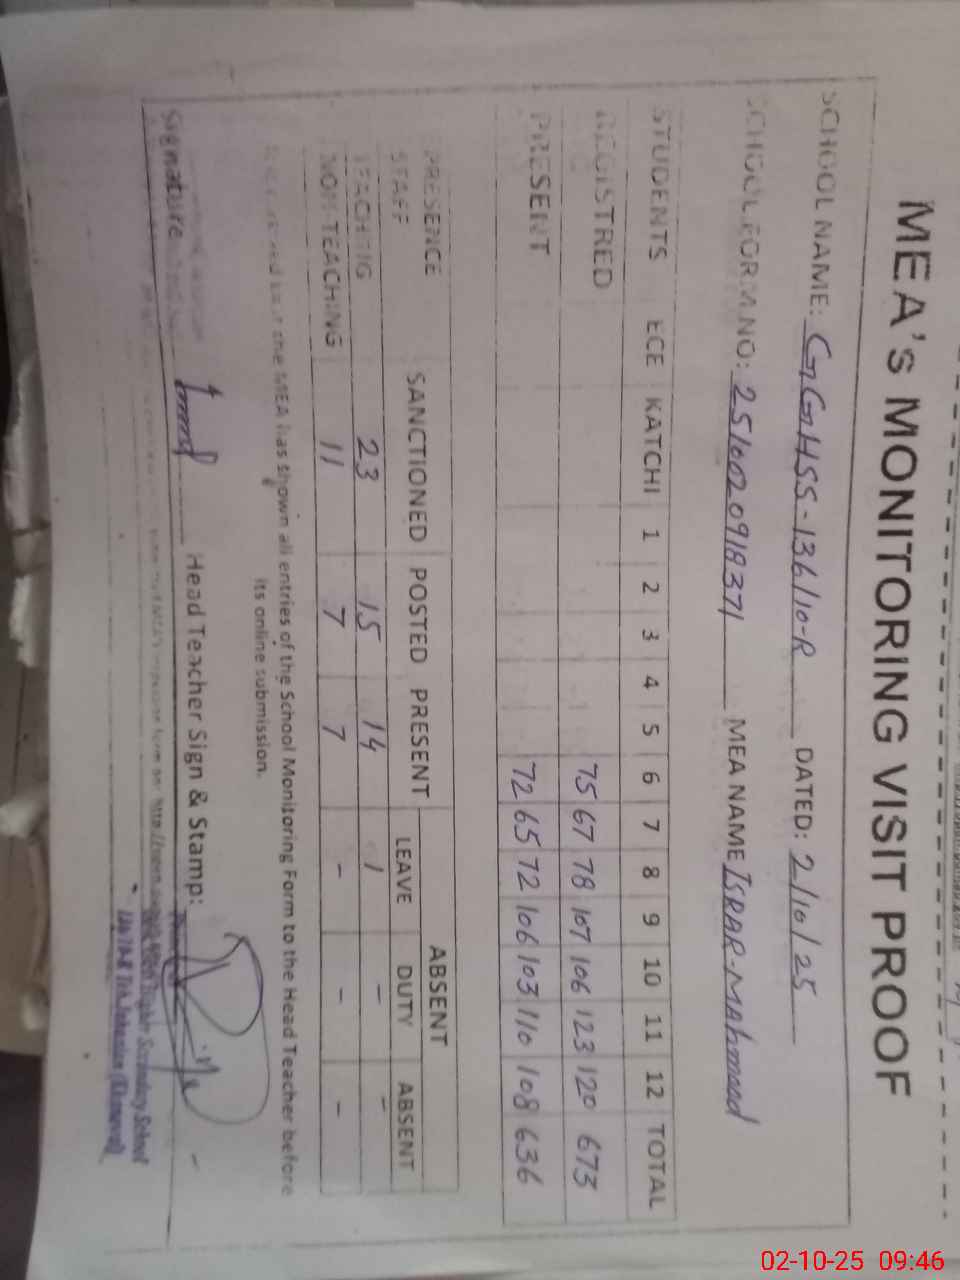 MEA's MONITORING VISIT PROOF
SCHOOL NAME: GGHSS-136/10-R DATED: 2/10/25
SCHOOL FORM NO: 251002091837 MEA NAME ISRAR-MAhmood
STUDENTS ECE KATCHI 1 2 3 4 5 6 7 8 9 10 11 12 TOTAL
REGISTRED 75 67 78 107 106 123 120 673
PRESENT 72 65 72 106 103 110 108 636
PRESENCE SANCTIONED POSTED PRESENT ABSENT
STAFF LEAVE DUTY ABSENT
TEACHING 23 15 14 1 - -
NON-TEACHING 11 7 7 - - -
the MEA has shown all entries of the School Monitoring Form to the Head Teacher before
its online submission.
Signature Head Teacher Sign & Stamp:
Higher Secondary School
(Khanewal)
02-10-25 09:46